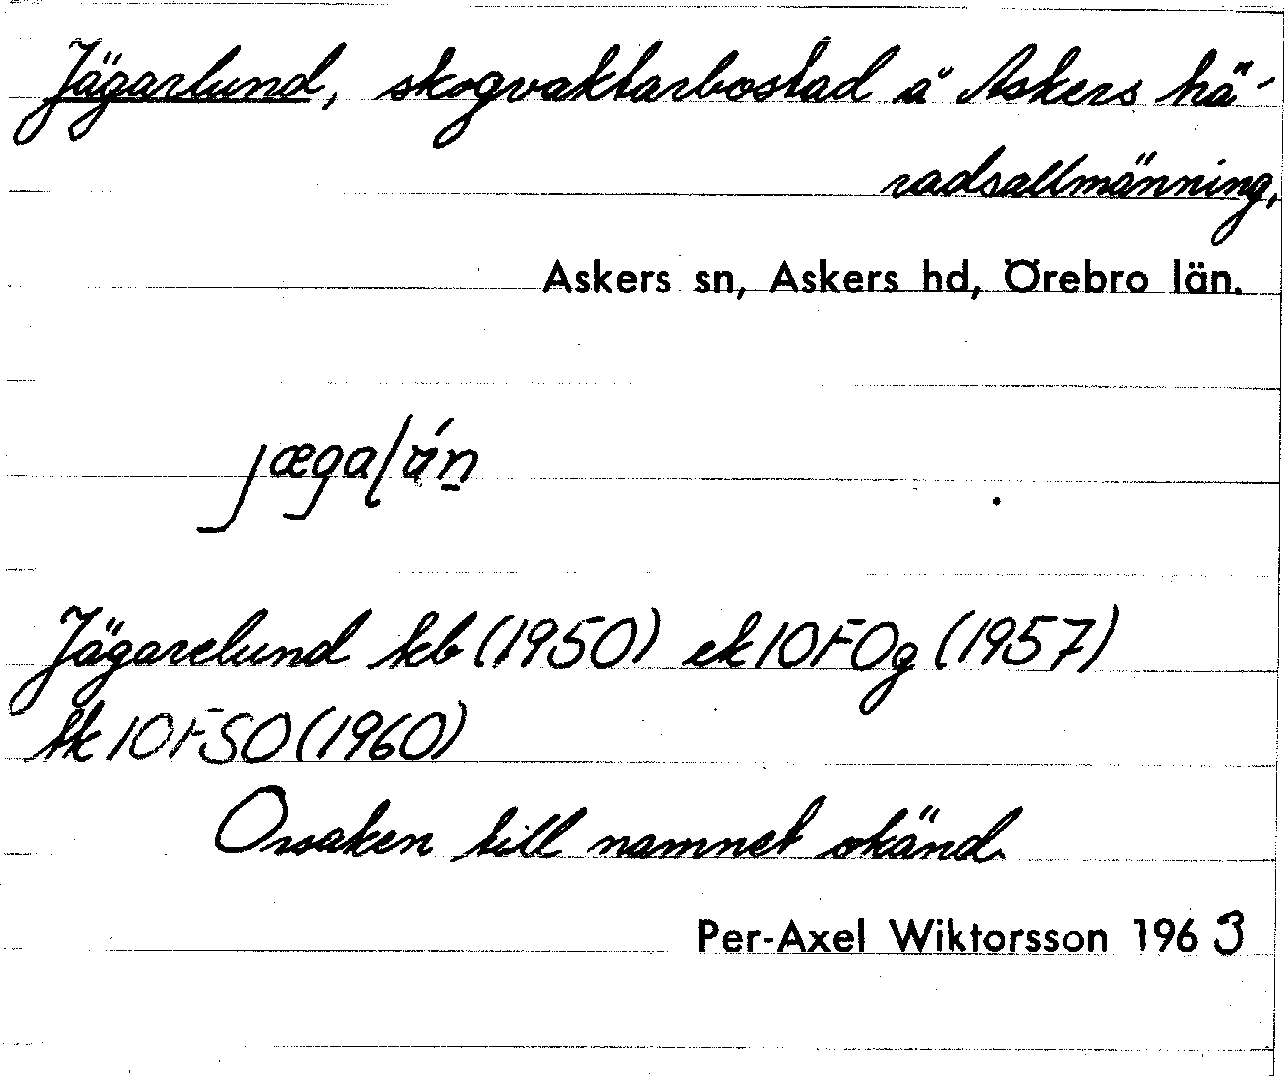 Jägarlund, skogvaktarbostad å Askers hä-
radsallmänning,
Askers sn, Askers hd, Örebro län.
Jägarelund kb (1950) ek 10F0g (1957)
tk 10FSO (1960)
Orsaken till namnet okänd.
Per-Axel Wiktorsson 1963